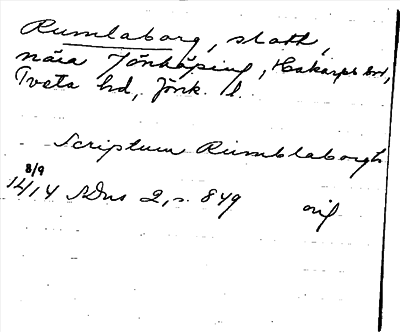 Rumlaborg, slott,
nära Jönköping, Hakarps sn,
Tveta hd, Jönk. l.
Scriptum Rumblaborgh
8/9
1414 SDns 2, s. 849 orig